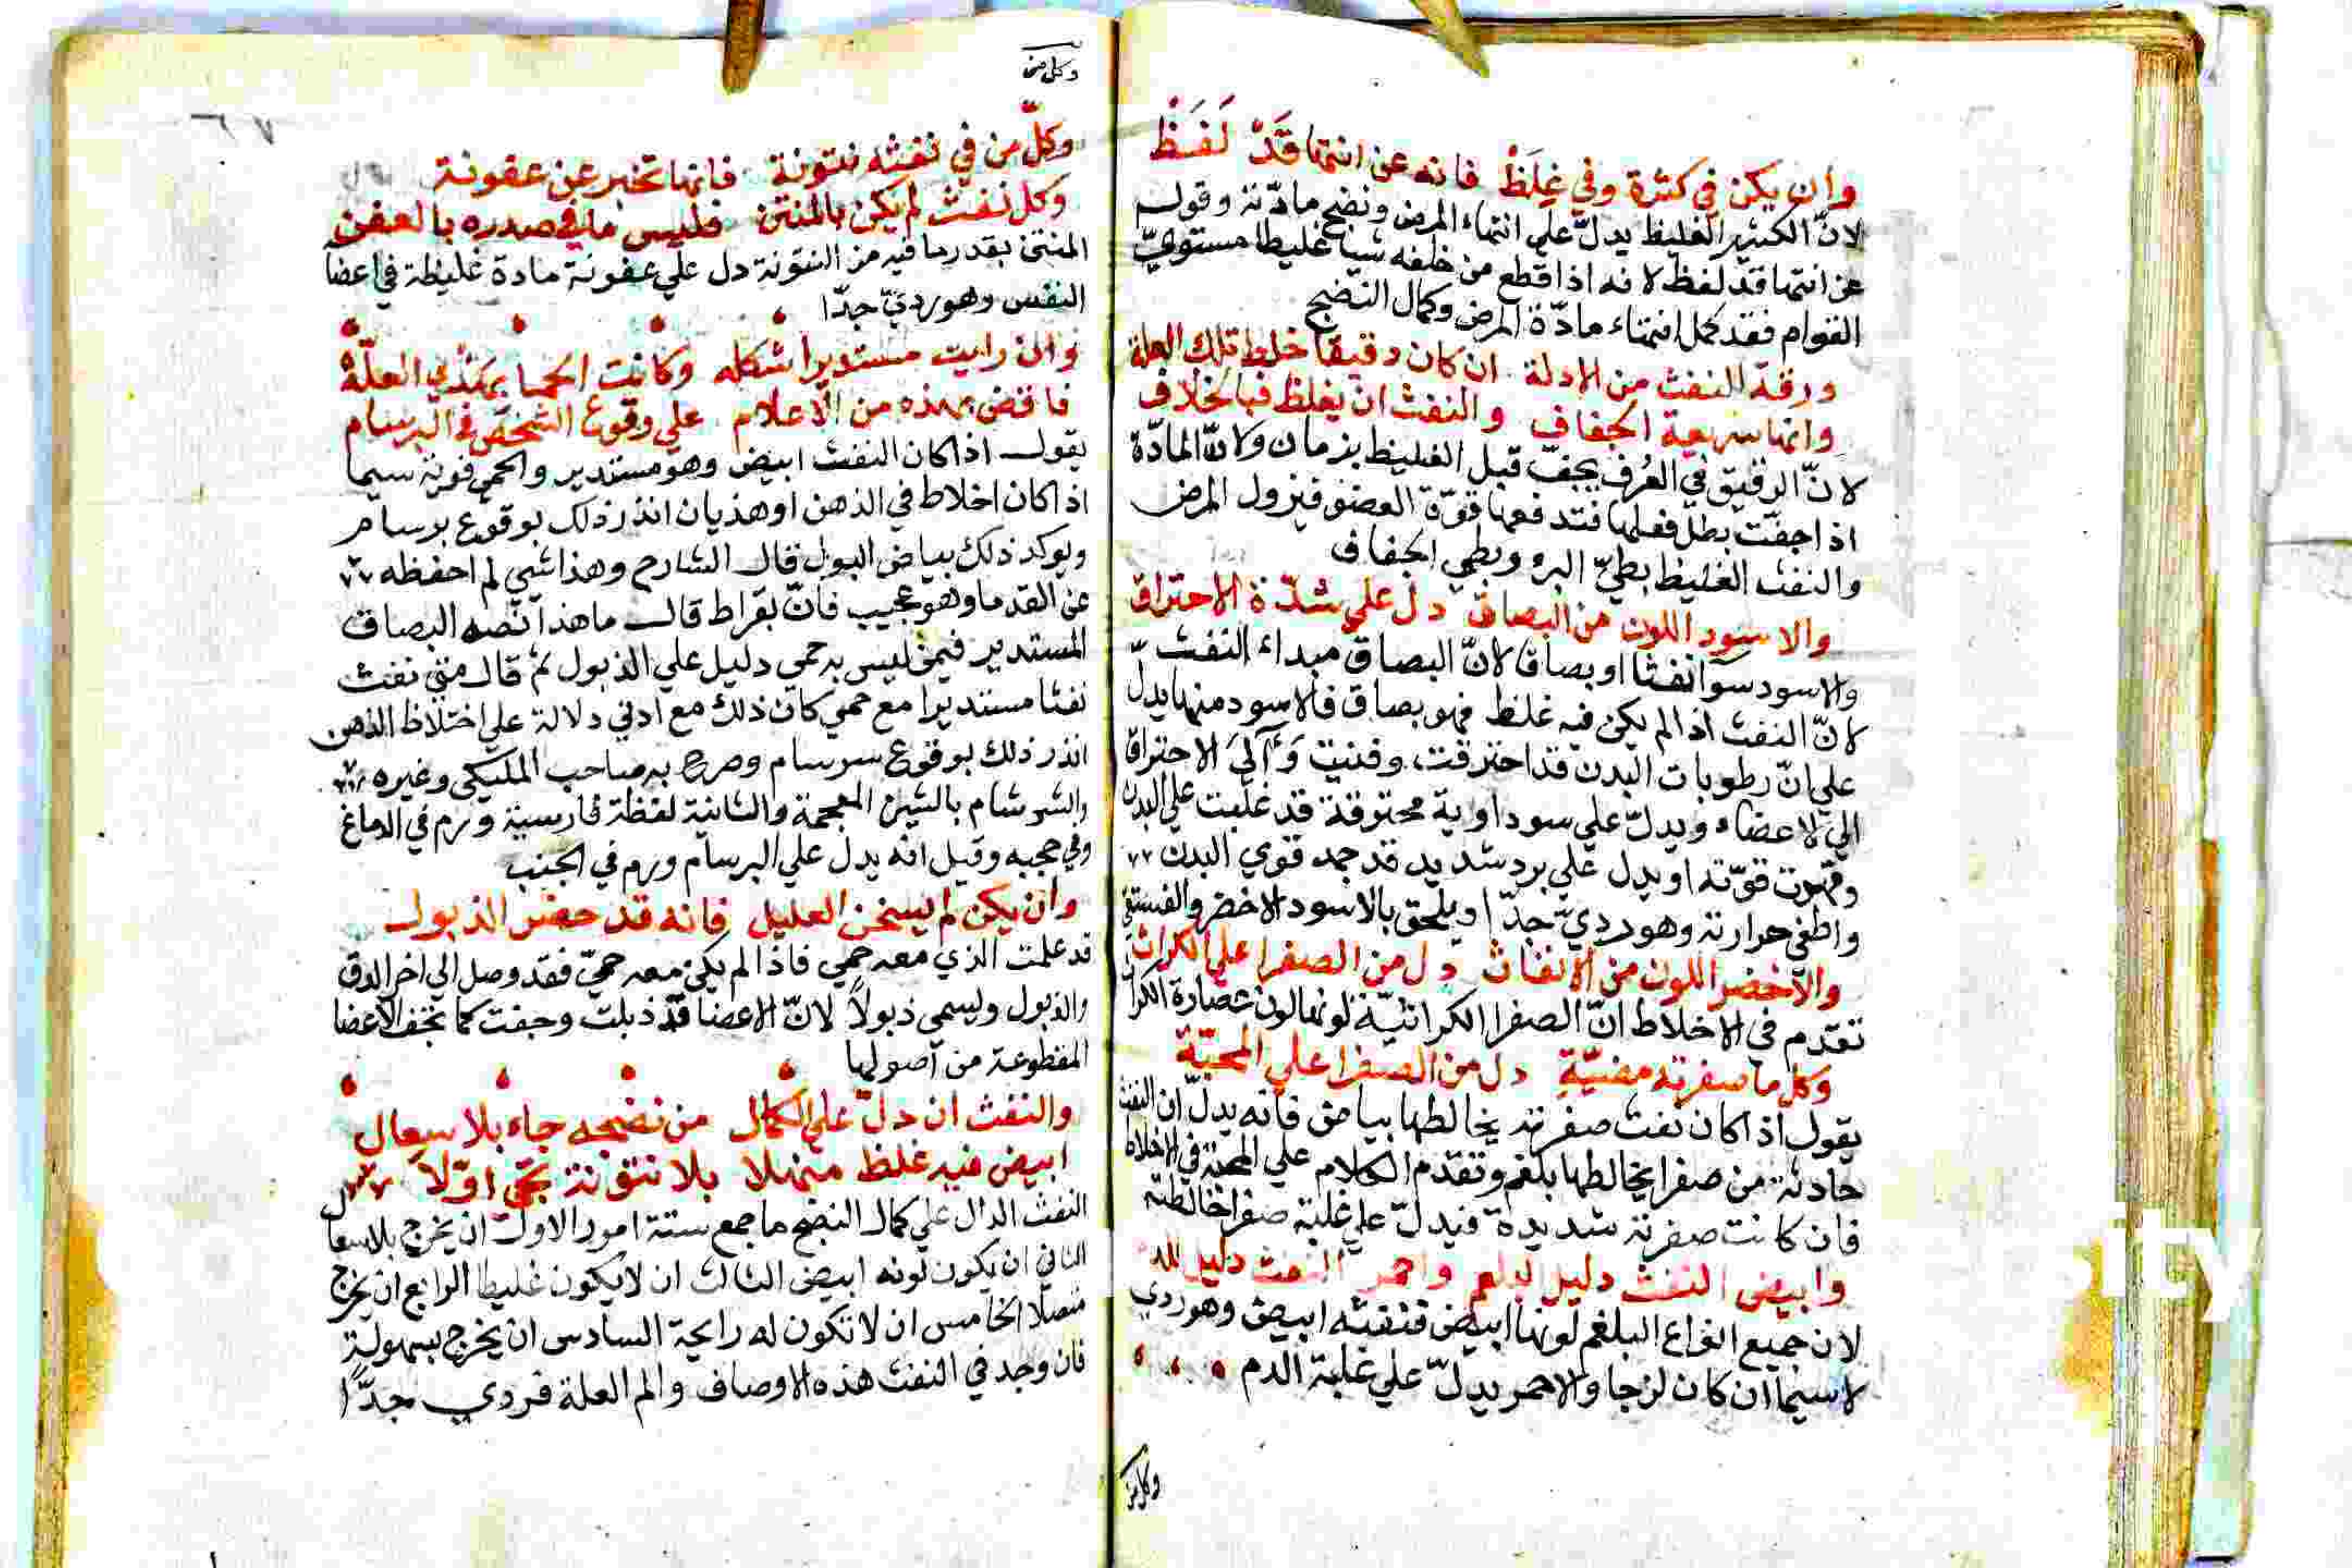 وان يكن في كثرة وفي غِلَظْ فانه عن انتها قَدْ لَفَظْ
لانّ الكثير الغليظ يدلّ علي انتهاء المرض ونضج مادّته وقوله
عن انتها قد لفظ لانه اذا قطع من خلفه شيا غليظا مستوي
القوام فقد كمل انتهاء مادّة المرض وكمال النضج
ورقة النفث من الادلة ان كان دقيقا خلط تلك العلة
وانها سريعة الجفاف والنفث ان يغلظ فبالخلاف
لانّ الرقيق في العُرف يجفّ قبل الغليظ بزمان ولانّ المادّة
اذا جفّت بطل فعلها فتدفعها قوّة العضو فيزول المرض
والنفث الغليظ بطيّ البرو وبطي الجفاف
والاسود اللون من البصاق دل علي شدّة الاحتراق
والاسود سوآ نفثا او بصاقا لانّ البصاق مبداء النفث
لانّ النفث اذا لم يكن فيه غلظ فهو بصاق فالاسود منهما يدلّ
علي انّ رطوبات البدن قد احترقت وفنيت وآلي الاحتراق
الي الاعضاء ويدلّ علي سوداوية محترقة قد غلبت علي البدن
وقهرت قوّته او يدل علي برد شديد قد جمد قوي البدن
واطفي حرارته وهو رديّ جدّا ويلحق بالاسود الاخضر والفستقي
والاخضر اللون من الانفاث دل من الصفرا علي الكراث
تقدّم في الاخلاط انّ الصفرا الكراثيّة لونها لون عصارة الكراث
وكل ما صفرته مضيّةٍ دل من الصفرا علي المحيّة
يقول اذا كان نفث صفرته يخالطها بياض فانه يدلّ ان النفث
حادثة من صفرا يخالطها بلغم وتقدم الكلام علي المحية في الاخلاط
فان كانت صفرته شديدة فيدلّ علي غلبة صفرا خالطته
وابيض النفث دليل البلغم واحمر النفث دليل للدم
لان جميع انواع البلغم لونها ابيض فنفثه ابيض وهو ردي
لاسيما ان كان لزجا والاحمر يدلّ علي غلبة الدم
وكل من
وكل من
٦٧
وكلّ من في نفثه نتونة فانها تخبر عن عفونة
وكل نفث لم يكن بالمنتن فليس ما في صدره بالعفن
المنتن بقدر ما فيه من النتونة دل علي عفونة مادة غليظة في اعضا
النفس وهو رديّ جدّا
وان رايت مستديرا شكله وكانت الحما بهَذْي العلّهْ
فاقض بهذه من الاعلام علي وقوع الشخص في البرسام
يقول اذا كان النفث ابيض وهو مستدير والحمي قوية سيما
اذا كان اخلاط في الذهن او هذيان انذر ذلك بوقوع برسام
ويوكد ذلك بياض البول قال الشارح وهذا شي لم احفظه
عن القدما وهو عجيب فانّ بقراط قال ما هذا نصه البصاق
المستدير فيمن ليس به حمي دليل علي الذبول ثم قال متي نفث
نفثا مستديرا مع حمي كان ذلك مع ادني دلالة علي اختلاط الذهن
انذر ذلك بوقوع سرسام وصرح به صاحب الملكي وغيره
والشرشام بالشين المعجمة والثانية لفظة فارسية ورم في الدماغ
وفي حجبه وقيل انه يدل علي البرسام ورم في الجنب
وان يكن لم يسخن العليل فانه قد حضر الذبول
قد علمت الذي معه حمي فاذا لم يكن معه حميّ فقد وصل الي اخر الدق
والذبول وليسمي ذبولاً لانّ الاعضا قد ذبلت وجفت كما تجف الاعضا
المقطوعة من اصولها
والنفث ان دلّ علي الكمال من نضجه جاء بلا سعال
ابيض فيه غلظ متصلا بلا نتونة يجي اوّلا
النفث الدال علي كمال النضج ما جمع ستة امور الاول ان يخرج بلا سعال
الثاني ان يكون لونه ابيض الثالث ان لا يكون غليظا الرابع ان يخرج
متصلا الخامس ان لا تكون له رايحة السادس ان يخرج بسهولةٍ
فان وجد في النفث هذه الاوصاف والم العلة فردي جدّاً